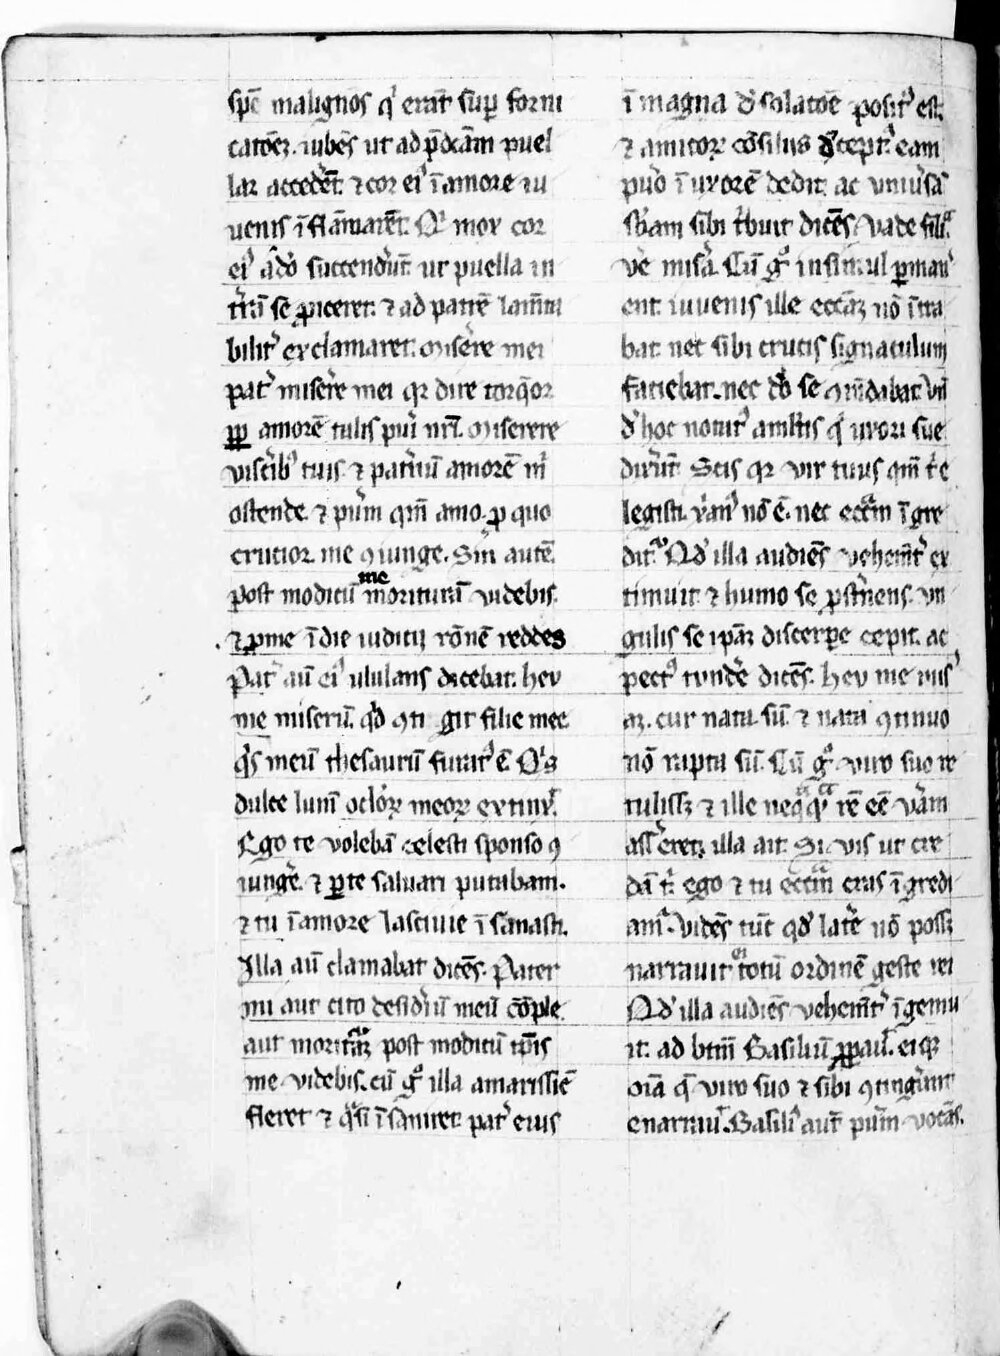 sp̄c malignos q̇ erāt suꝑ forni
catōeꝫ. iubēs ut ad p̄dc̄am puel
laꝫ accedēt̄. ⁊ cor ei᷒ ī amore iu
uenis īflāmarēt. Qͥ mox cor
ei᷒ ad̓o succend̓ut̄. ut puella in
t̓rā se ꝓiceret. ⁊ ad patrē lam̄ta
bilit᷒ exclamaret. Mise̓re mei
pat̓ mise̓re mei qꝛ dire torqeōr
ꝓpꝑ amorē talis pu̓i nr̄i. Miserere
viscib̓᷒ tuis ⁊ pat̓nū amorē m̓
ostende. ⁊ pu̓m qm̄ amo. ꝓ quo
crucior. me ꝯiunge. Sin̄ autē
post modicū me moriturā videbis.
⁊ ꝓ me ī die iudicij rōnē reddes
Pat̓ aū ei᷒ ululans dicebat. heu
me miserū. qd̓ ꝯtigit filie mee
q̓s meū thesaurū furat᷒ ē Qͥs
dulce lum̄ oclōꝝ meoꝝ extinx̓.
Ego te volebā celesti sponso ꝯ
iunge̓. ⁊ ꝑ te saluari putabam.
⁊ tu ī amore lasciuie īsanasti.
Illa aū clamabat dicēs. Pater
mi aut cito desid̓iū meū cōple.
aut moritur̄aꝫ post modicū tp̄is
me videbis. cū gͦ illa amarissīe
fleret ⁊ qᵃsi īsaniret. pat̓ eius
ī magna d̓solatōe posit᷒ est.
⁊ amicoꝝ cōsiliis d̓cept᷒. eam
pu̓o ī uxorē dedit. ac vniu̓sā
sb̄am sibi t̓buit dicēs. Vade filiᵃ
ve̓ misa̓. Cū gͦ insimul ꝑman̓
ent. iuuenis ille ecc̄aꝫ nō ītra
bat. nec sibi crucis signaculum
faciebat. nec d̓o se ꝯm̄dabat. Vn̄
d̓ hoc notat᷒ a mltis q̓ uxori sue
dix̓ūt. Scis qꝛ vir tuus qm̄ t̓ e
legisti. xan̓᷒ nō ē. nec ecc̄am īgre
dit᷒. Qd̓ illa audiēs vehemt̄̓ ex
timuit ⁊ humo se ꝓst̓nens. vn
gulis se ip̄aꝫ discerꝑe cepit. ac
pect᷒ tunde̓ dicēs. heu me mis᷒
aꝫ. cur nata sū. ⁊ nata ꝯtinuo
nō rapta sū. Cū gͦ viro suo re
tulissꝫ ⁊ ille neqᵃqᵃ rē eē va̓m
ass̓eret. illa ait. Si vis ut cre
dā t̓. ego ⁊ tu ecc̄am cras īgredi
am᷒. Vidēs tūc qd̓ late̓ nō possꝫ
narrauit ei totū ordinē geste rei
Qd̓ illa audiēs vehemt̄̓ īgemu
it. ad btm̄ Basiliū ꝓꝑau̓. eiqꝫ
oīa q̄ viro suo ⁊ sibi ꝯting̓ant
enarrau̓. Basili᷒ aut̄ pu̓m vocās.